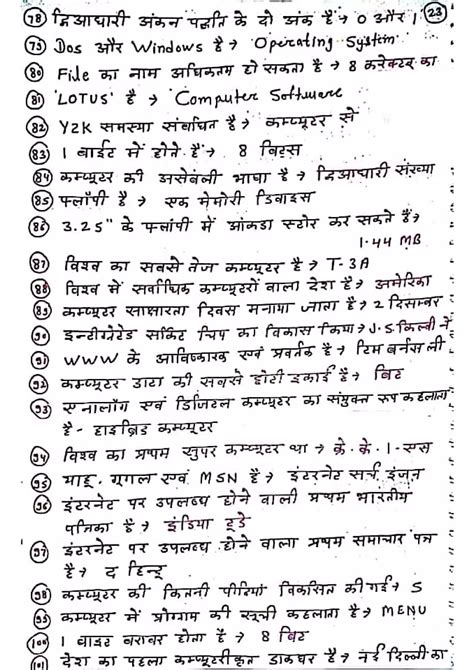 (78) द्विआधारी अंकन पद्धति के दो अंक हैं → 0 और 1 (23)
(79) Dos और Windows है → Operating System
(80) File का नाम अधिकतम हो सकता है → 8 करेक्टर का
(81) 'LOTUS' है → Computer Software
(82) Y2K समस्या संबंधित है → कम्प्यूटर से
(83) 1 बाईट में होते हैं → 8 बिट्स
(84) कम्प्यूटर की असेंबली भाषा है → द्विआधारी संख्या
(85) फ्लॉपी है → एक मेमोरी डिवाइस
(86) 3.25" के फ्लॉपी में आंकडा स्टोर कर सकते हैं →
1.44 MB
(87) विश्व का सबसे तेज कम्प्यूटर है → T-3A
(88) विश्व में सर्वाधिक कम्प्यूटरों वाला देश है → अमेरिका
(89) कम्प्यूटर साक्षारता दिवस मनाया जाता है → 2 दिसम्बर
(90) इन्टीग्रेटेड सर्किट चिप का विकास किया → J.S. किल्वी ने
(91) WWW के आविष्कारक एवं प्रवर्तक है → टिम बर्नस ली
(92) कम्प्यूटर डाटा की सबसे छोटी इकाई है → बिट
(93) एनालॉग एवं डिजिटल कम्प्यूटर का संयुक्त रूप कहलाता
है - हाइब्रिड कम्प्यूटर
(94) विश्व का प्रथम सुपर कम्प्यूटर था → क्रे. के. 1-एस
(95) याहू, गूगल एवं MSN है → इंटरनेट सर्च इंजन
(96) इंटरनेट पर उपलब्ध होने वाली प्रथम भारतीय
पत्रिका है → इंडिया टूडे
(97) इंटरनेट पर उपलब्ध होने वाला प्रथम समाचार पत्र
है → द हिन्दू
(98) कम्प्यूटर की कितनी पीढियां विकसित की गई → 5
(99) कम्प्यूटर में प्रोग्राम की सूची कहलाता है → MENU
(100) 1 बाइट बराबर होता है → 8 बिट
(101) देश का पहला कम्प्यूटरीकृत डाकघर है → नई दिल्ली का